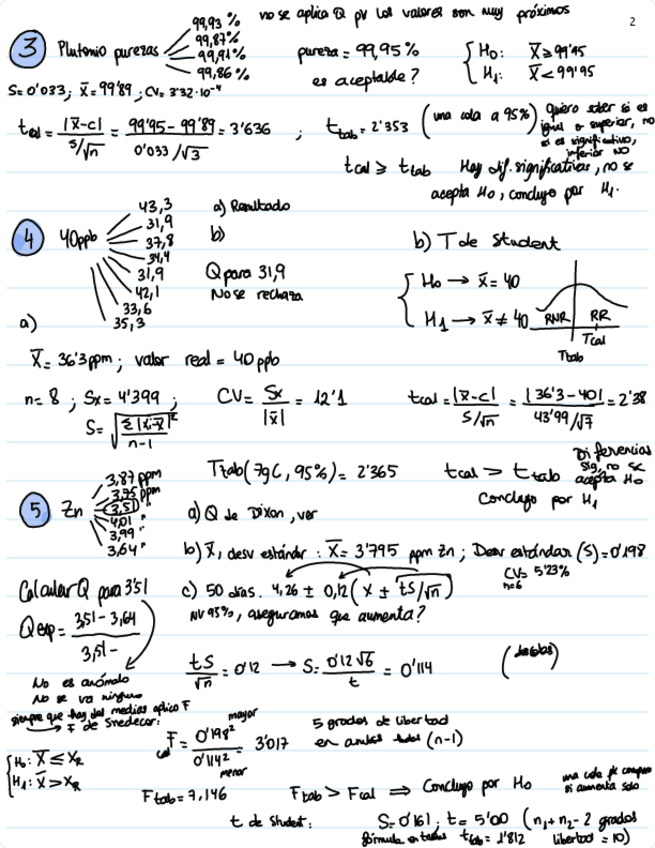 2
no se aplica Q pq los valores son muy próximos
3 Plutonio purezas 99,93 %
99,87%
99,91%
99,86%
pureza = 99,95%
es aceptable?
H₀: X̄ ≥ 99'95
H₁: X̄ < 99'95
S = 0'033; X̄ = 99'89; CV = 3'32·10⁻⁴
tcal = |X̄-c| / S/√n = 99'95 - 99'89 / 0'033/√3 = 3'636 ; ttab = 2'353 (una cola a 95%)
quiero saber si es
igual o superior, no
si es significativo,
inferior NO
tcal ≥ ttab Hay dif. significativas, no se
acepta H₀, concluyo por H₁.
4 40ppb 43,3
31,9
37,8
34,4
31,9
42,1
33,6
35,3
a) Resultado
b)
Q para 31,9
No se rechaza
b) T de Student
H₀ → X̄ = 40
H₁ → X̄ ≠ 40
RNR RR
Tcal
Ttab
a)
X̄ = 36'3ppm ; valor real = 40ppb
n = 8 ; Sx = 4'399 ; CV = Sx / |X̄| = 12'1
S =
n-1
tcal = |X̄-c| / S/√n = |36'3-40| / 43'99/√7 = 2'38
Ttab (7gl, 95%) = 2'365 tcal > ttab
Diferencias
sig, no se
acepta H₀
Concluyo por H₁
5 Zn 3,87 ppm
3,75 ppm
3,51 "
4,01 "
3,99 "
3,64 "
a) Q de Dixon, ver
b) X̄, desv estándar : X̄ = 3'795 ppm Zn ; Desv estándar (S) = 0'198
CV = 5'23%
n=6
Calcular Q para 3'51
Qexp = 3,51 - 3,64 / 3,51 -
c) 50 días. 4,26 ± 0,12 (X ± tS/√n)
NV 95%, aseguramos que aumenta?
tS / √n = 0'12 → S = 0'12√6 / t = 0'114
No es anómalo
No se va ninguno
siempre que hay dos medias aplico F
→ F de Snedecor:
H₀: X̄ ≤ XR
H₁: X̄ > XR
mayor
Fcal = 0'198² / 0'114² = 3'017
menor
5 grados de libertad
en ambos (n-1)
Ftab = 7,146 Ftab > Fcal ⇒ Concluyo por H₀
una cola pk compro
si aumenta solo
t de Student: S = 0'161 ; t = 5'00 (n₁ + n₂ - 2 grados
fórmula ttab = 1'812 libertad = 10)